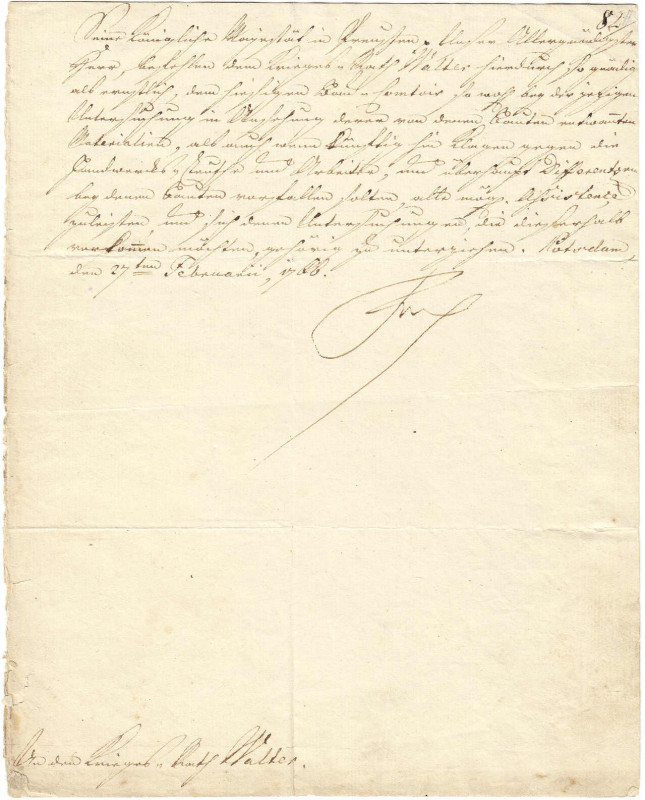 82
Seine Königliche Majestät in Preussen, Unser Allergnädigster
Herr, befehlen dem Krieges-Rath Walter hierdurch so gnädig
als ernstlich, dem hiesigen Bau-Comtoir so wohl bey der jetzigen
Untersuchung in Ansehung derer von denen Bauten entwannten
Materialien, als auch wenn künftig hin Klagen gegen die
Handwercks-Leuthe und Arbeiter, und überhaupt Differentzen
bey denen Bauten vorfallen solten, alle mögl. Assistence
zuleisten, und sich denen Untersuchungen, die dieserhalb
vorkommen möchten, gehörig zu unterziehen. Potsdam,
den 27ten Februarii, 1766.
Fch
An den Krieges-Rath Walter.